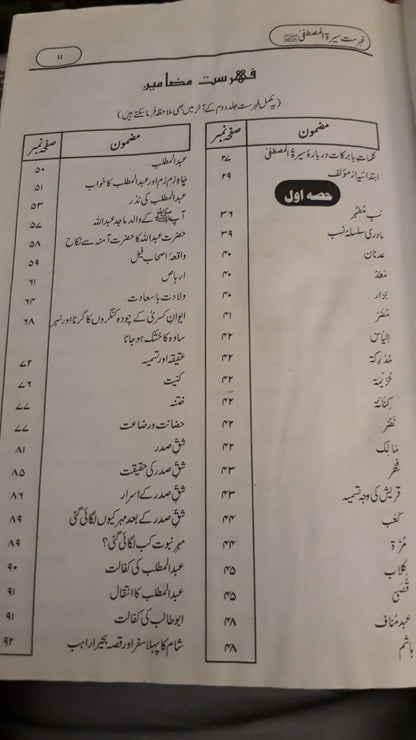 فہرست سیرۃ المصطفیٰ ﷺ
۱۱
فہرست مضامین
(یہ مکمل فہرست جلد دوم کے آخر میں بھی ملاحظہ فرما سکتے ہیں)
مضمون صفحہ نمبر
کلمات بابرکات دربارۂ سیرۃ المصطفیٰ ۲۷
ابتدائیہ از مؤلف ۲۹
حصہ اول
نسب مُطہَّر ۳۶
مادری سلسلہ نسب ۳۹
عدنان ۴۰
مَعَدّ ۴۰
نِزار ۴۰
مُضَر ۴۱
اِلیَاس ۴۲
مُدْرِکَہ ۴۲
خُزَیْمَہ ۴۲
کِنَانَہ ۴۲
نَضْر ۴۲
مَالِک ۴۲
فِھْر ۴۳
قریش کی وجہ تسمیہ ۴۳
کَعْب ۴۴
مُرَّۃ ۴۴
کِلاب ۴۵
قُصَیّ ۴۵
عبد مُناف ۴۸
ہاشم ۴۸
مضمون صفحہ نمبر
عبدالمطلب ۵۰
چاہ زم زم اور عبدالمطلب کا خواب ۵۱
عبدالمطلب کی نذر ۵۳
آپ ﷺ کے والد ماجد عبداللہ ۵۷
حضرت عبداللہ کا حضرت آمنہ سے نکاح ۵۸
واقعۂ اصحاب فیل ۵۹
ارہاص ۶۱
ولادت باسعادت ۶۴
ایوان کسریٰ کے چودہ کنگروں کا گرنا اور نہر ۶۸
ساوہ کا خشک ہو جانا
عقیقہ اور تسمیہ ۷۲
کنیت ۷۶
ختنہ ۷۷
حضانت و رضاعت ۷۷
شقِّ صدر ۸۱
شقِّ صدر کی حقیقت ۸۵
شقِّ صدر کے اسرار ۸۶
شقِّ صدر کے بعد مہر کیوں لگائی گئی ۸۹
مہر نبوت کب لگائی گئی؟ ۸۹
عبدالمطلب کی کفالت ۹۰
عبدالمطلب کا انتقال ۹۱
ابوطالب کی کفالت ۹۱
شام کا پہلا سفر اور قصہ بحیرا راہب ۹۲